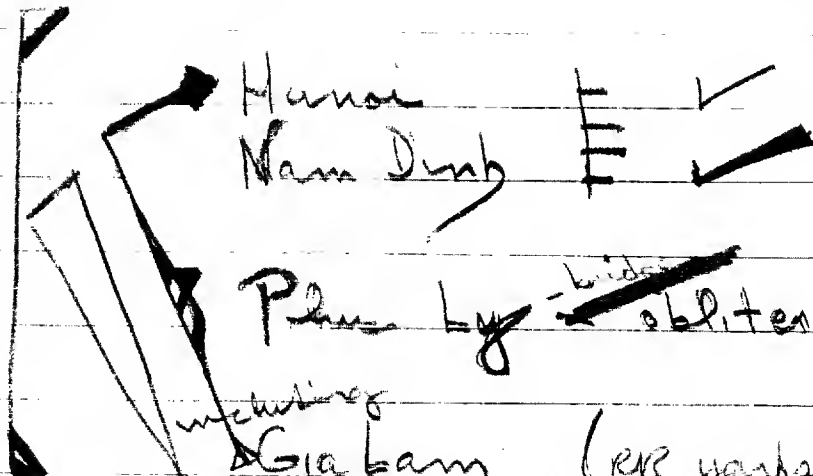 Hanoi
Nam Dinh
Phu Ly - obliter
including
Gia Lam (RR yards